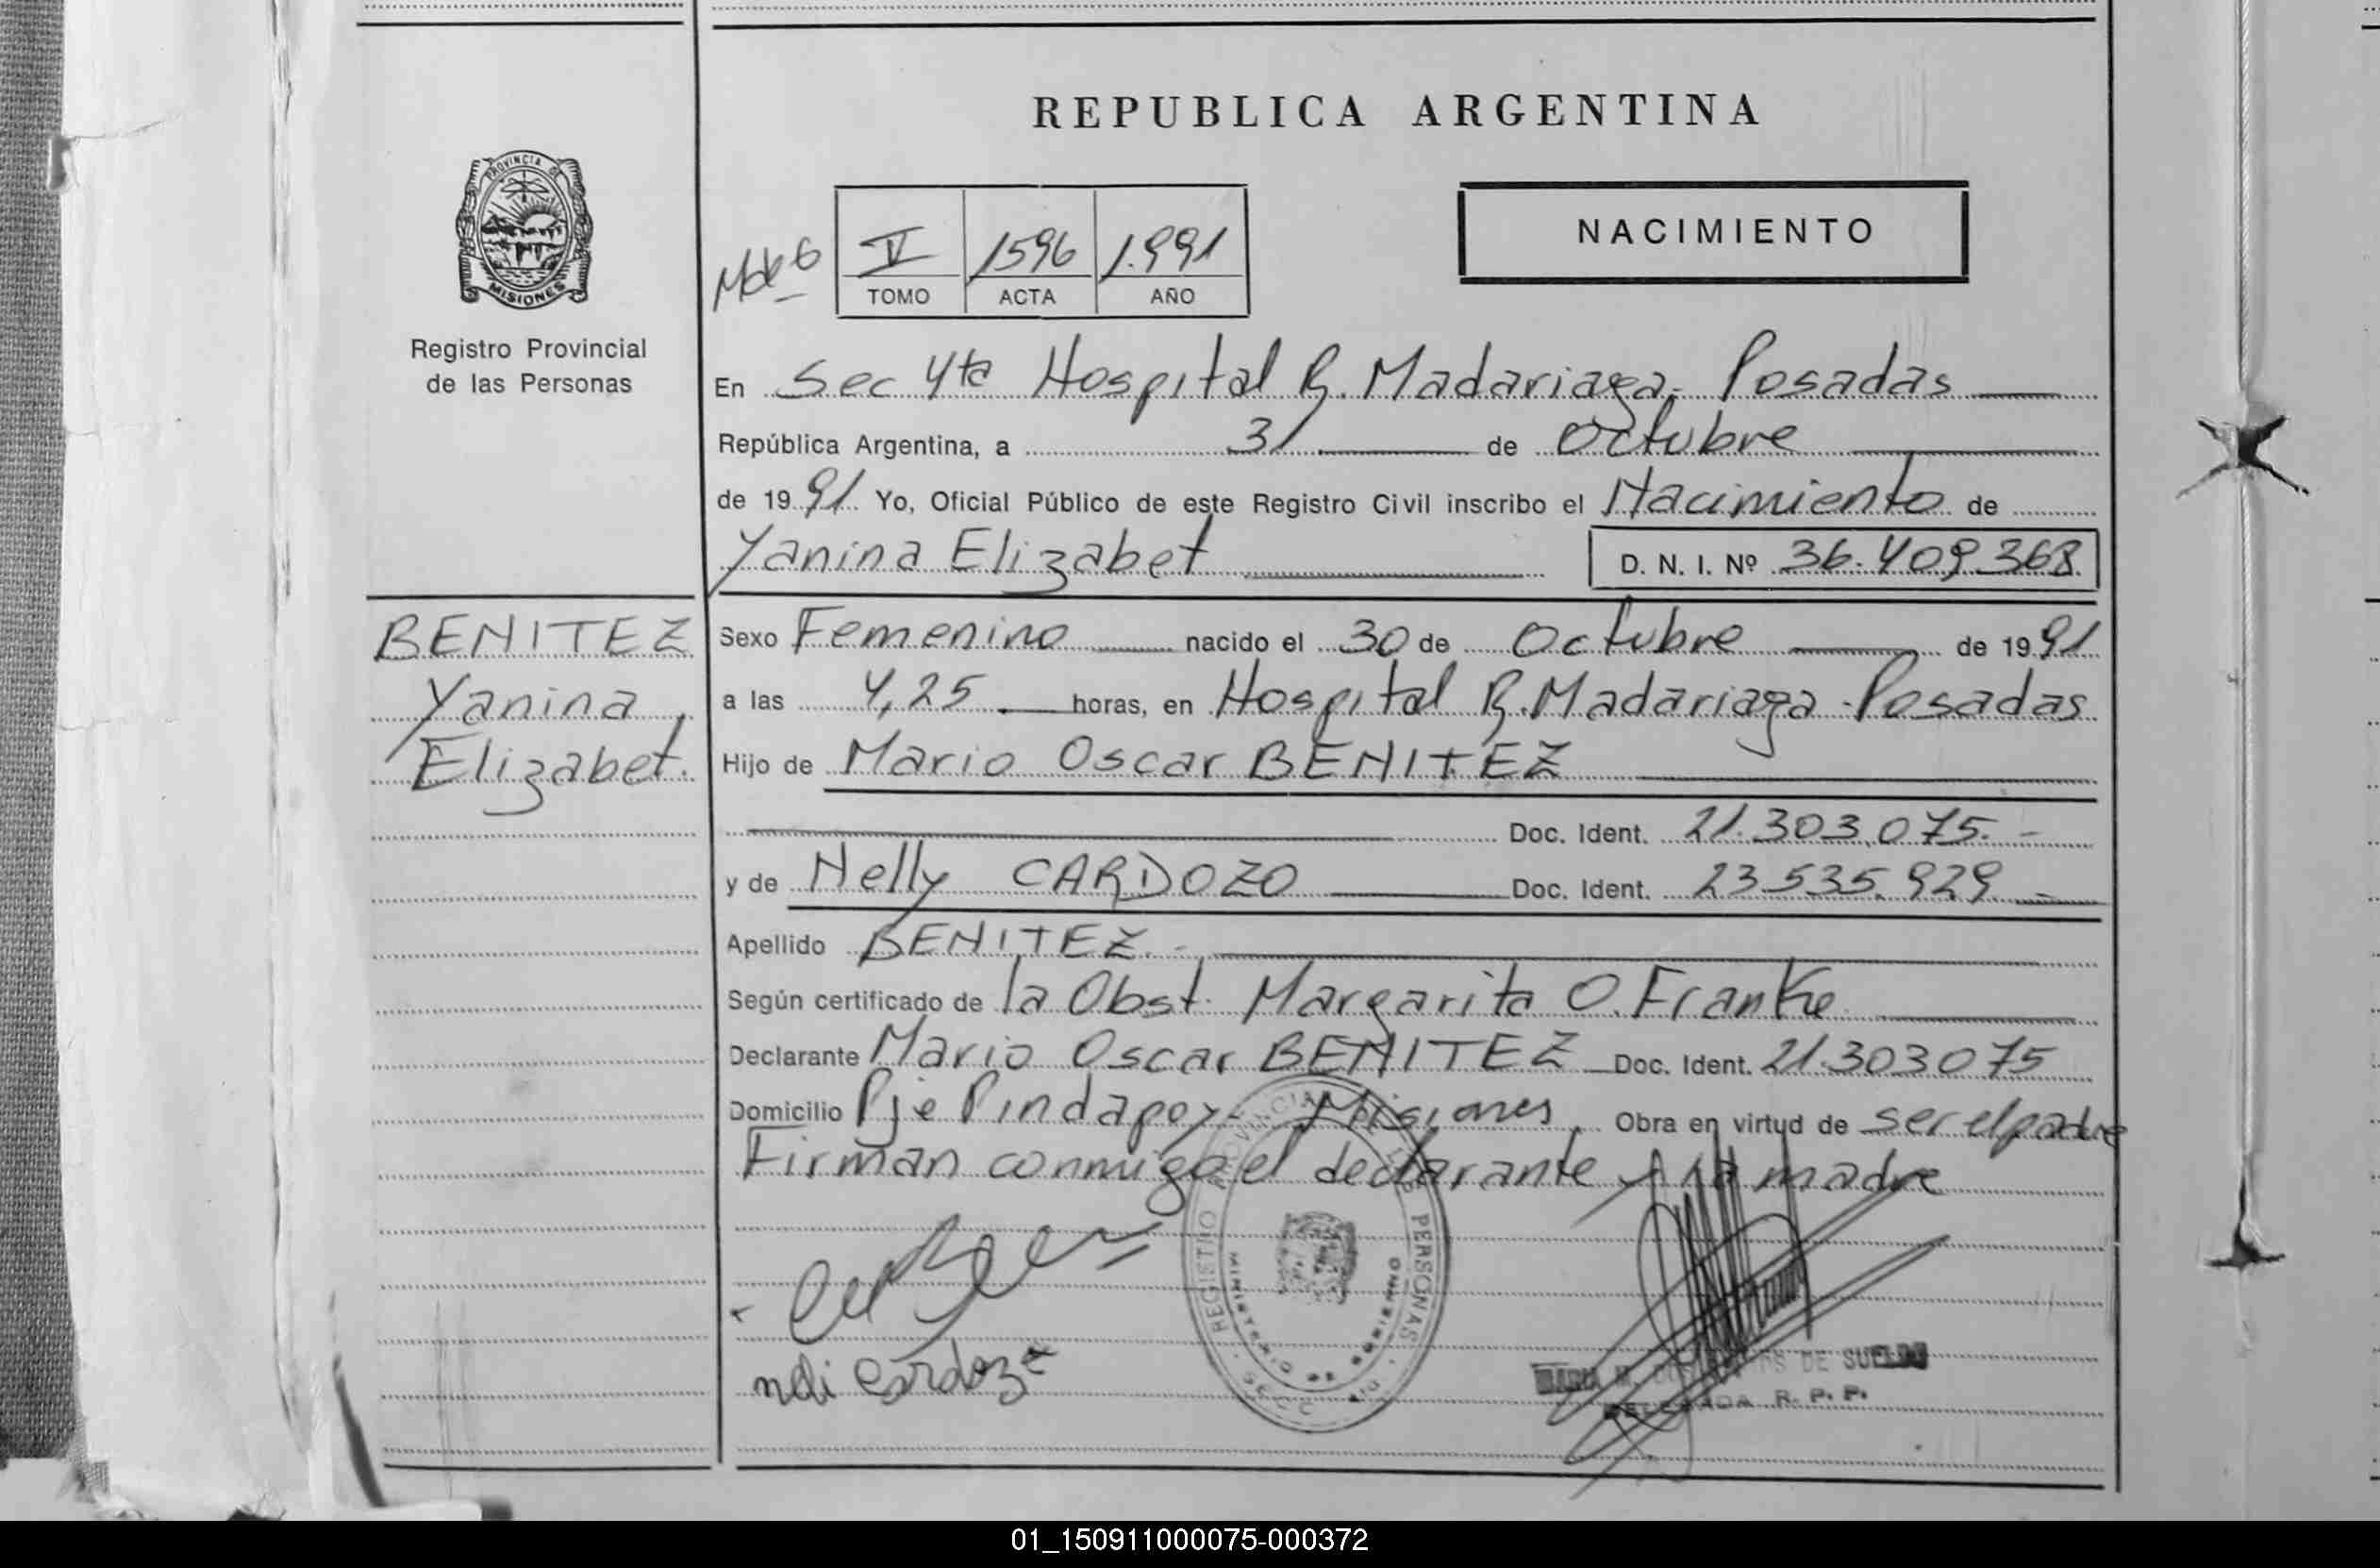 REPUBLICA ARGENTINA
PROVINCIA DE
MISIONES
Registro Provincial
de las Personas
NACIMIENTO
V 1596 1.991
TOMO ACTA AÑO
En Sec 4ta Hospital R. Madariaga- Posadas
República Argentina, a 31 de Octubre
de 1991 Yo, Oficial Público de este Registro Civil inscribo el Nacimiento de
Yanina Elizabet D. N. I. Nº 36.409.368
BENITEZ
Yanina
Elizabet.
Sexo Femenino nacido el 30 de Octubre de 1991
a las 4,25 horas, en Hospital R. Madariaga - Posadas
Hijo de Mario Oscar BENITEZ
Doc. Ident. 21.303.075.-
y de Nelly CARDOZO Doc. Ident. 23.535.929.-
Apellido BENITEZ.-
Según certificado de la Obst. Margarita O. Franke
Declarante Mario Oscar BENITEZ Doc. Ident. 21.303075
Domicilio Pje Pindapoy- Misiones Obra en virtud de ser el padre
Firman conmigo el declarante y la madre
REGISTRO PROVINCIAL PERSONAS
MINISTERIO DE GOBIERNO
DE SUELDO
DELEGADA R. P. P.
01_150911000075-000372